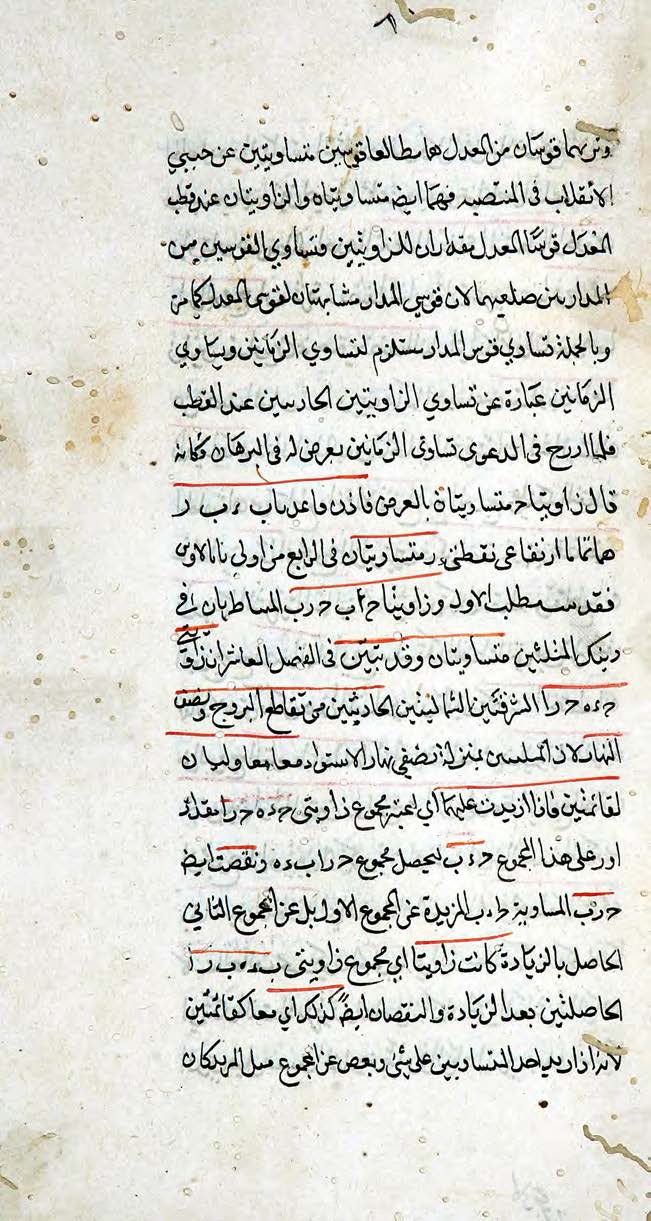 وتربهما قوستان من المعدل هما مطالعا قوسين متساويتين عن جنبتي
الانقلاب في المنتصبه فهما ايضا متساويتان والزاويتان عند قطب
المعدل قوستا المعدل مقداران للزاويتين وتساوي القوسين من
المدارين ضلعيهما لان قوسي المدار متشابهتان لقوسي المعدل كما مر
وبالجملة تساوي قوس المدار مستلزم لتساوي الزمانين وتساوي
الزمانين عبارة عن تساوي الزاويتين الحادثتين عند القطب
فلما ادرج في الدعوى تساوي الزمانين تعرض له في البرهان فكانه
قال زاويتا ح متساويتان بالعرض فاذن قاعدتا ب ء ب ر
هما تماما ارتفاعي نقطتي ء ر متساويتان في الرابع من اولى نالاوس
فقد ثبت مطلب الاول وزاويتا ح ء ب ح ر ب المتناظرتان في
ذينك المثلثين متساويتان وقد تبين في الفصل العاشر ان زاويتي
ح ء ه ح ر ا الشرقتين الشماليتين الحادثتين من تقاطع البروج ونصف
النهار لان المثلثين بمنزلة نصفي نهار الاستواء معا معادلتان
لقائمتين فاذا ازيدت عليهما اي لعينه مجموع زاويتي ح ء ه ح ر ا بقدر
اور على هذا المجموع ح ء ب ليحصل مجموع ح ر ا ب ء ه ونقصت ايضا
ح ر ب المساوية ح ء ب المزيدة عن المجموع الاول بل عن المجموع الثاني
الحاصل بالزيادة كانت زاويتا اي مجموع زاويتي ب ء ه ب ر ا
الحاصلتين بعد الزيادة والنقصان ايضا كذلك اي معا كقائمتين
لانه اذا زيد احد المتساويين على شئ ونقص عن المجموع مثل المزيد كان